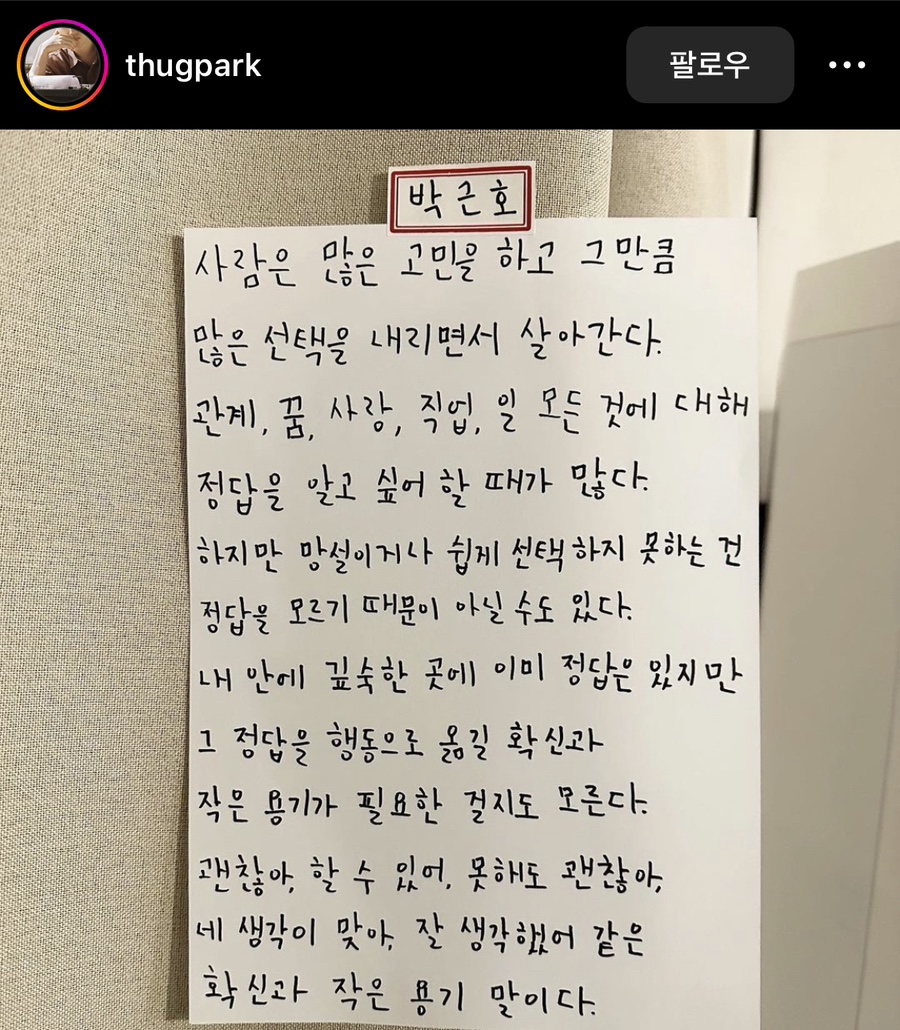 thugpark
팔로우
박근호
사람은 많은 고민을 하고 그만큼
많은 선택을 내리면서 살아간다.
관계, 꿈, 사랑, 직업, 일 모든 것에 대해
정답을 알고 싶어 할 때가 많다.
하지만 망설이거나 쉽게 선택하지 못하는 건
정답을 모르기 때문이 아닐 수도 있다.
내 안에 깊숙한 곳에 이미 정답은 있지만
그 정답을 행동으로 옮길 확신과
작은 용기가 필요한 걸지도 모른다.
괜찮아, 할 수 있어, 못해도 괜찮아,
네 생각이 맞아, 잘 생각했어 같은
확신과 작은 용기 말이다.